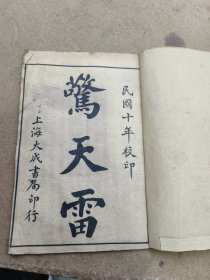 民國十年校印
驚天雷
上海大成書局印行